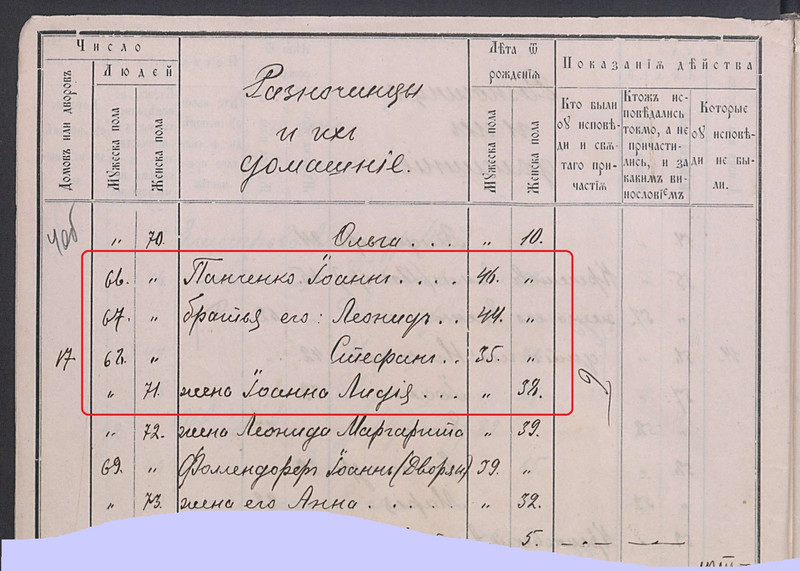 Число
Людей
Домовъ или дворовъ
Мꙋжеска пола
Женска пола
Разночинцы
и ихъ
домашніе.
Лѣта ѿ
рожденія
Мꙋжеска пола
Женска пола
Показанія дѣйства
Кто были
оу исповѣ-
ди и свѧ-
таго при-
частіѧ
Ктожъ ис-
повѣдались
токмо, а не
причасти-
лись, и за
какимъ ви-
нословіемъ
Которые
оу исповѣ-
ди не бы-
ли.
„ 70. Ольга . . . „ 10.
66. „ Панченко Іоаннъ . . . . 46. „
67. „ братья его: Леонидъ . . 44. „
17 68. „ Стефанъ . . 35. „
„ 71. жена Іоанна Лидія . . . „ 38.
„ 72. жена Леонида Маргарита „ 39.
69. „ Іоаннъ (Дворян) 39. „
„ 73. жена его Анна . . . . „ 32.
5.